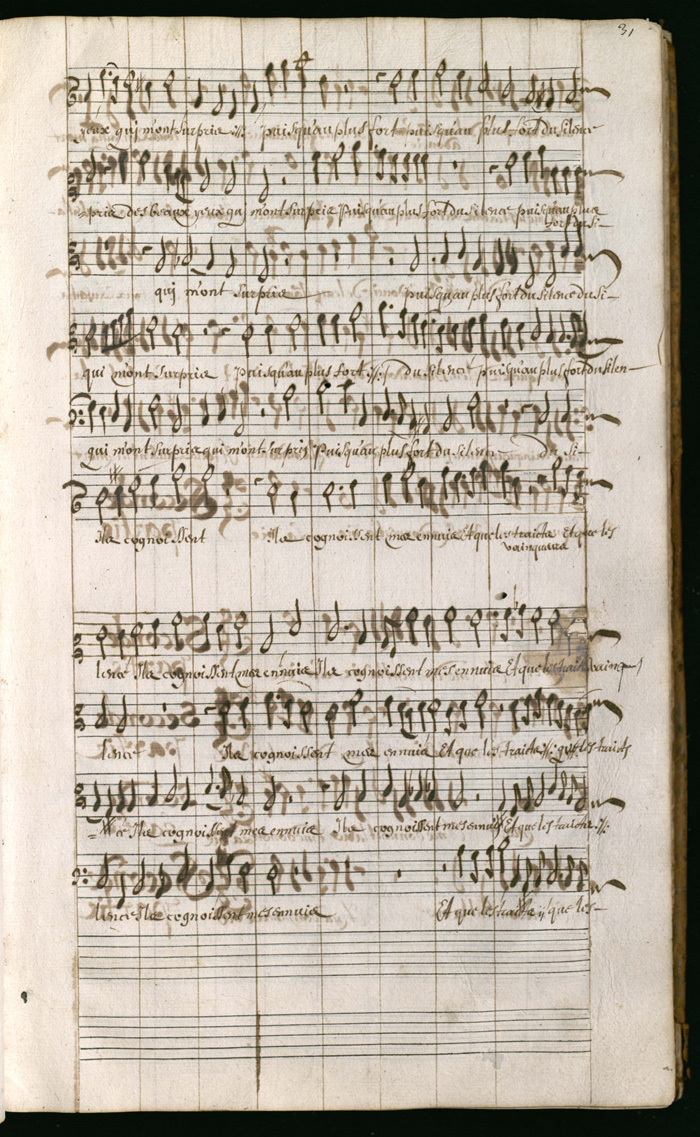 31
yeux qui m'ont surpris :||: puisqu'au plus fort puisqu'au plus fort du silence
pris des beaux yeux qui m'ont surpris Puisqu'au plus fort du silence puisqu'au plus
fort du si-
qui m'ont surpris puisqu'au plus fort du silence du si-
qui m'ont surpris puisqu'au plus fort :||: du silence puisqu'au plus fort du silen-
qui m'ont surpris qui m'ont surpris Puisqu'au plus fort du silence du si-
Ils cognoissent Ils cognoissent mes ennuis Et que les traicts Et que les
vainqueurs
lence Ils cognoissent mes ennuis Ils cognoissent mes ennuis Et que les traits vainq
lence Ils cognoissent mes ennuis Et que les traicts :||: que les traicts
ce Ils cognoissent mes ennuis Ils cognoissent mes ennuis Et que les traicts :||:
lence Ils cognoissent mes ennuis Et que les traicts ij que les-